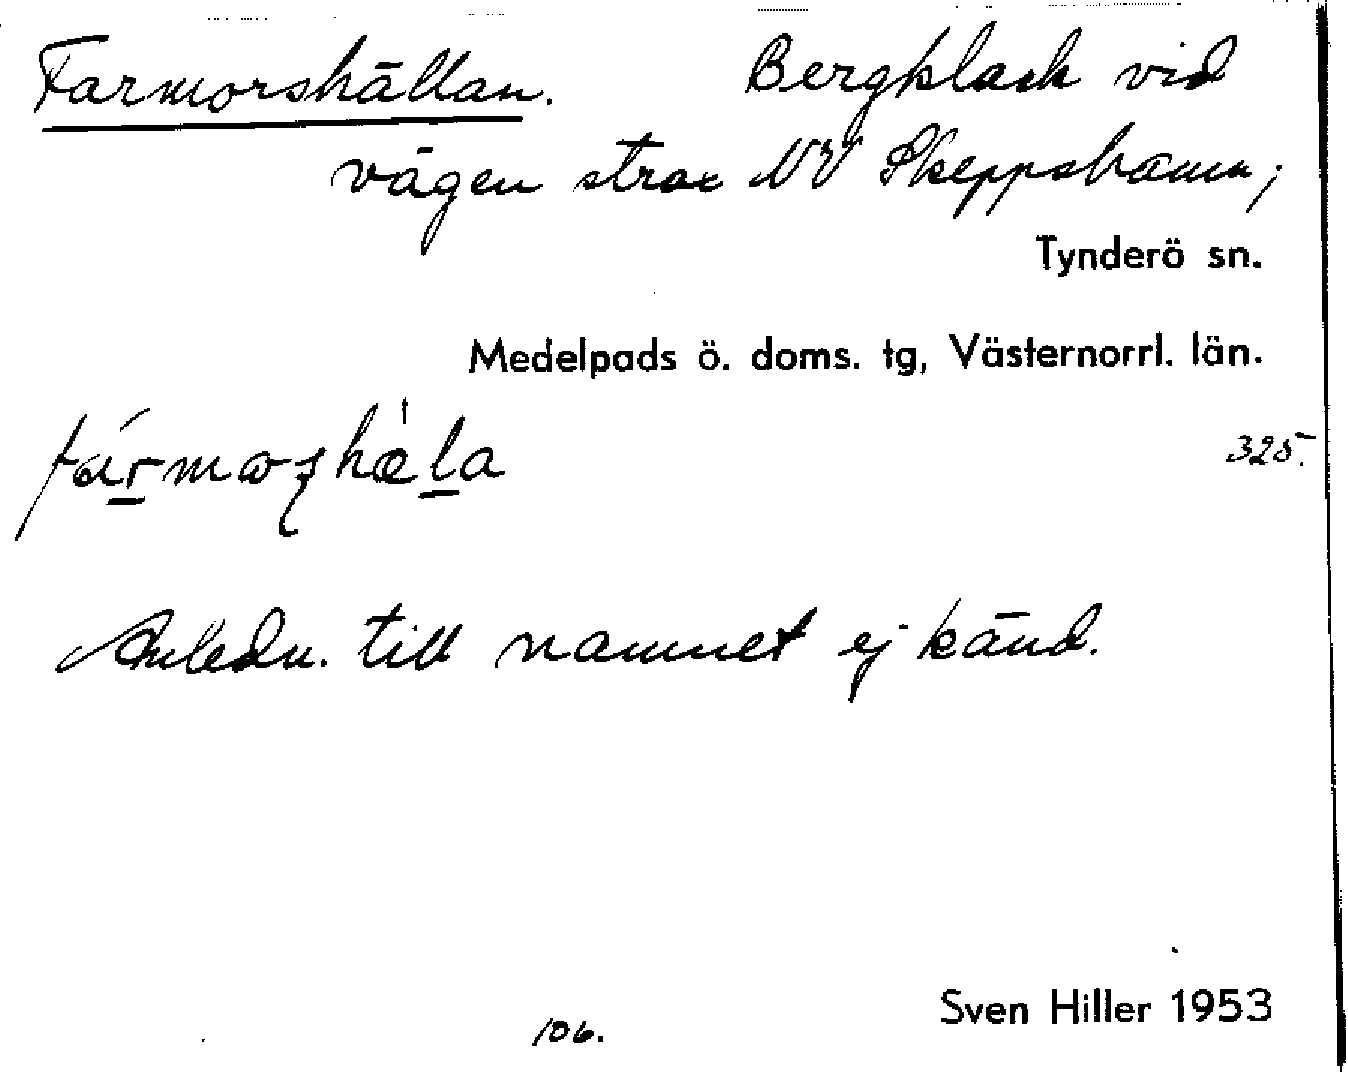 Farmorshällan. Bergklack vid
vägen strax NV Skeppshamn;
Tynderö sn.
Medelpads ö. doms. tg, Västernorrl. län.
325.
Anledn. till namnet ej känd.
Sven Hiller 1953
106.